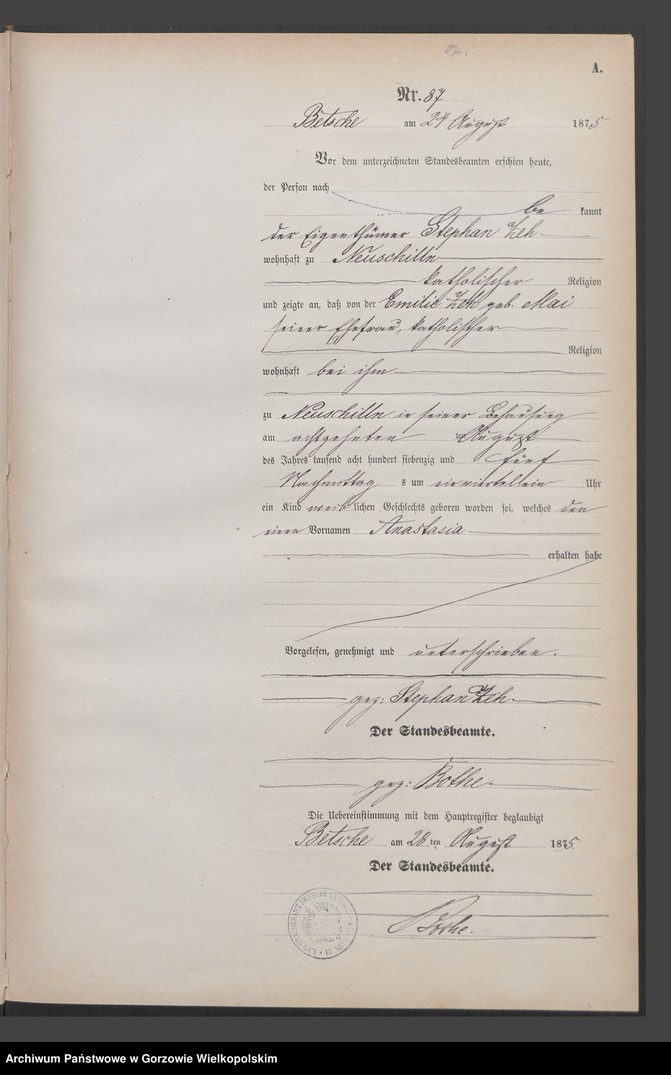 87.
A.
Nr. 87
Betsche am 24 August 1875
Vor dem unterzeichneten Standesbeamten erschien heute,
der Person nach
be kannt
der Eigenthümer Stephan Zeh
wohnhaft zu Neuschilln
katholischer Religion
und zeigte an, daß von der Emilie Zeh geb. Mai
seiner Ehefrau, katholischer
Religion
wohnhaft bei ihm
zu Neuschilln in seiner Behausung
am achtzehnten August
des Jahres tausend acht hundert siebenzig und fünf
Nachmittag s um Uhr
ein Kind weib lichen Geschlechts geboren worden sei, welches den
einen Vornamen Anastasia
erhalten habe
Vorgelesen, genehmigt und unterschrieben.
gez: Stephan Zeh
Der Standesbeamte.
gez: Bothe
Die Uebereinstimmung mit dem Hauptregister beglaubigt
Betsche am 28 ten August 1875.
Der Standesbeamte.
Bothe.
Archiwum Państwowe w Gorzowie Wielkopolskim